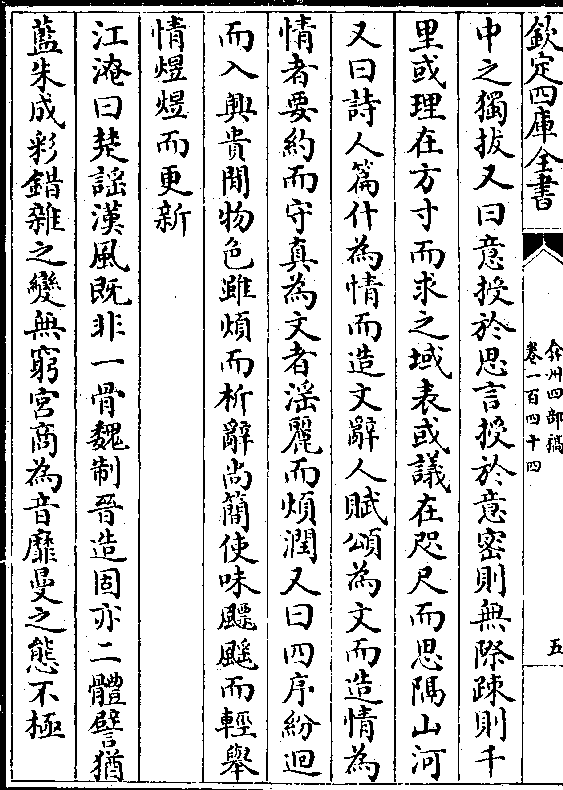 欽定四庫全書
弇州四部稿
卷一百四十四
五
中之獨拔又曰意授於思言授於意密則無際疎則千
里或理在方寸而求之域表或議在咫尺而思隔山河
又曰詩人篇什為情而造文辭人賦頌為文而造情為
情者要約而守真為文者滛麗而煩濶又曰四序紛迴
而入興貴閒物色雖煩而析辭尚簡使味飄飄而輕舉
情煜煜而更新
江淹曰楚謡漢風既非一骨魏制晉造固亦二體譬猶
藍朱成彩錯雜之變無窮宮商為音靡曼之態不極